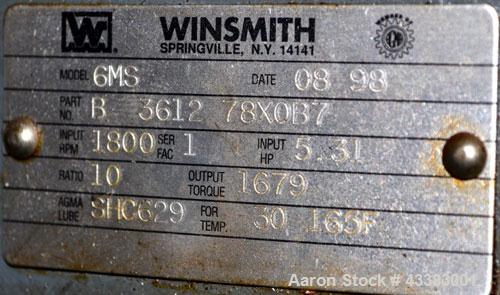 W WINSMITH
SPRINGVILLE, N.Y. 14141
MODEL 6MS DATE 08 98
PART NO. B 3612 78X0B7
INPUT RPM 1800 SER FAC 1 INPUT HP 5.31
RATIO 10 OUTPUT TORQUE 1679
AGMA LUBE SHC629 FOR TEMP. 30 165F
Aaron Stock # 43393001